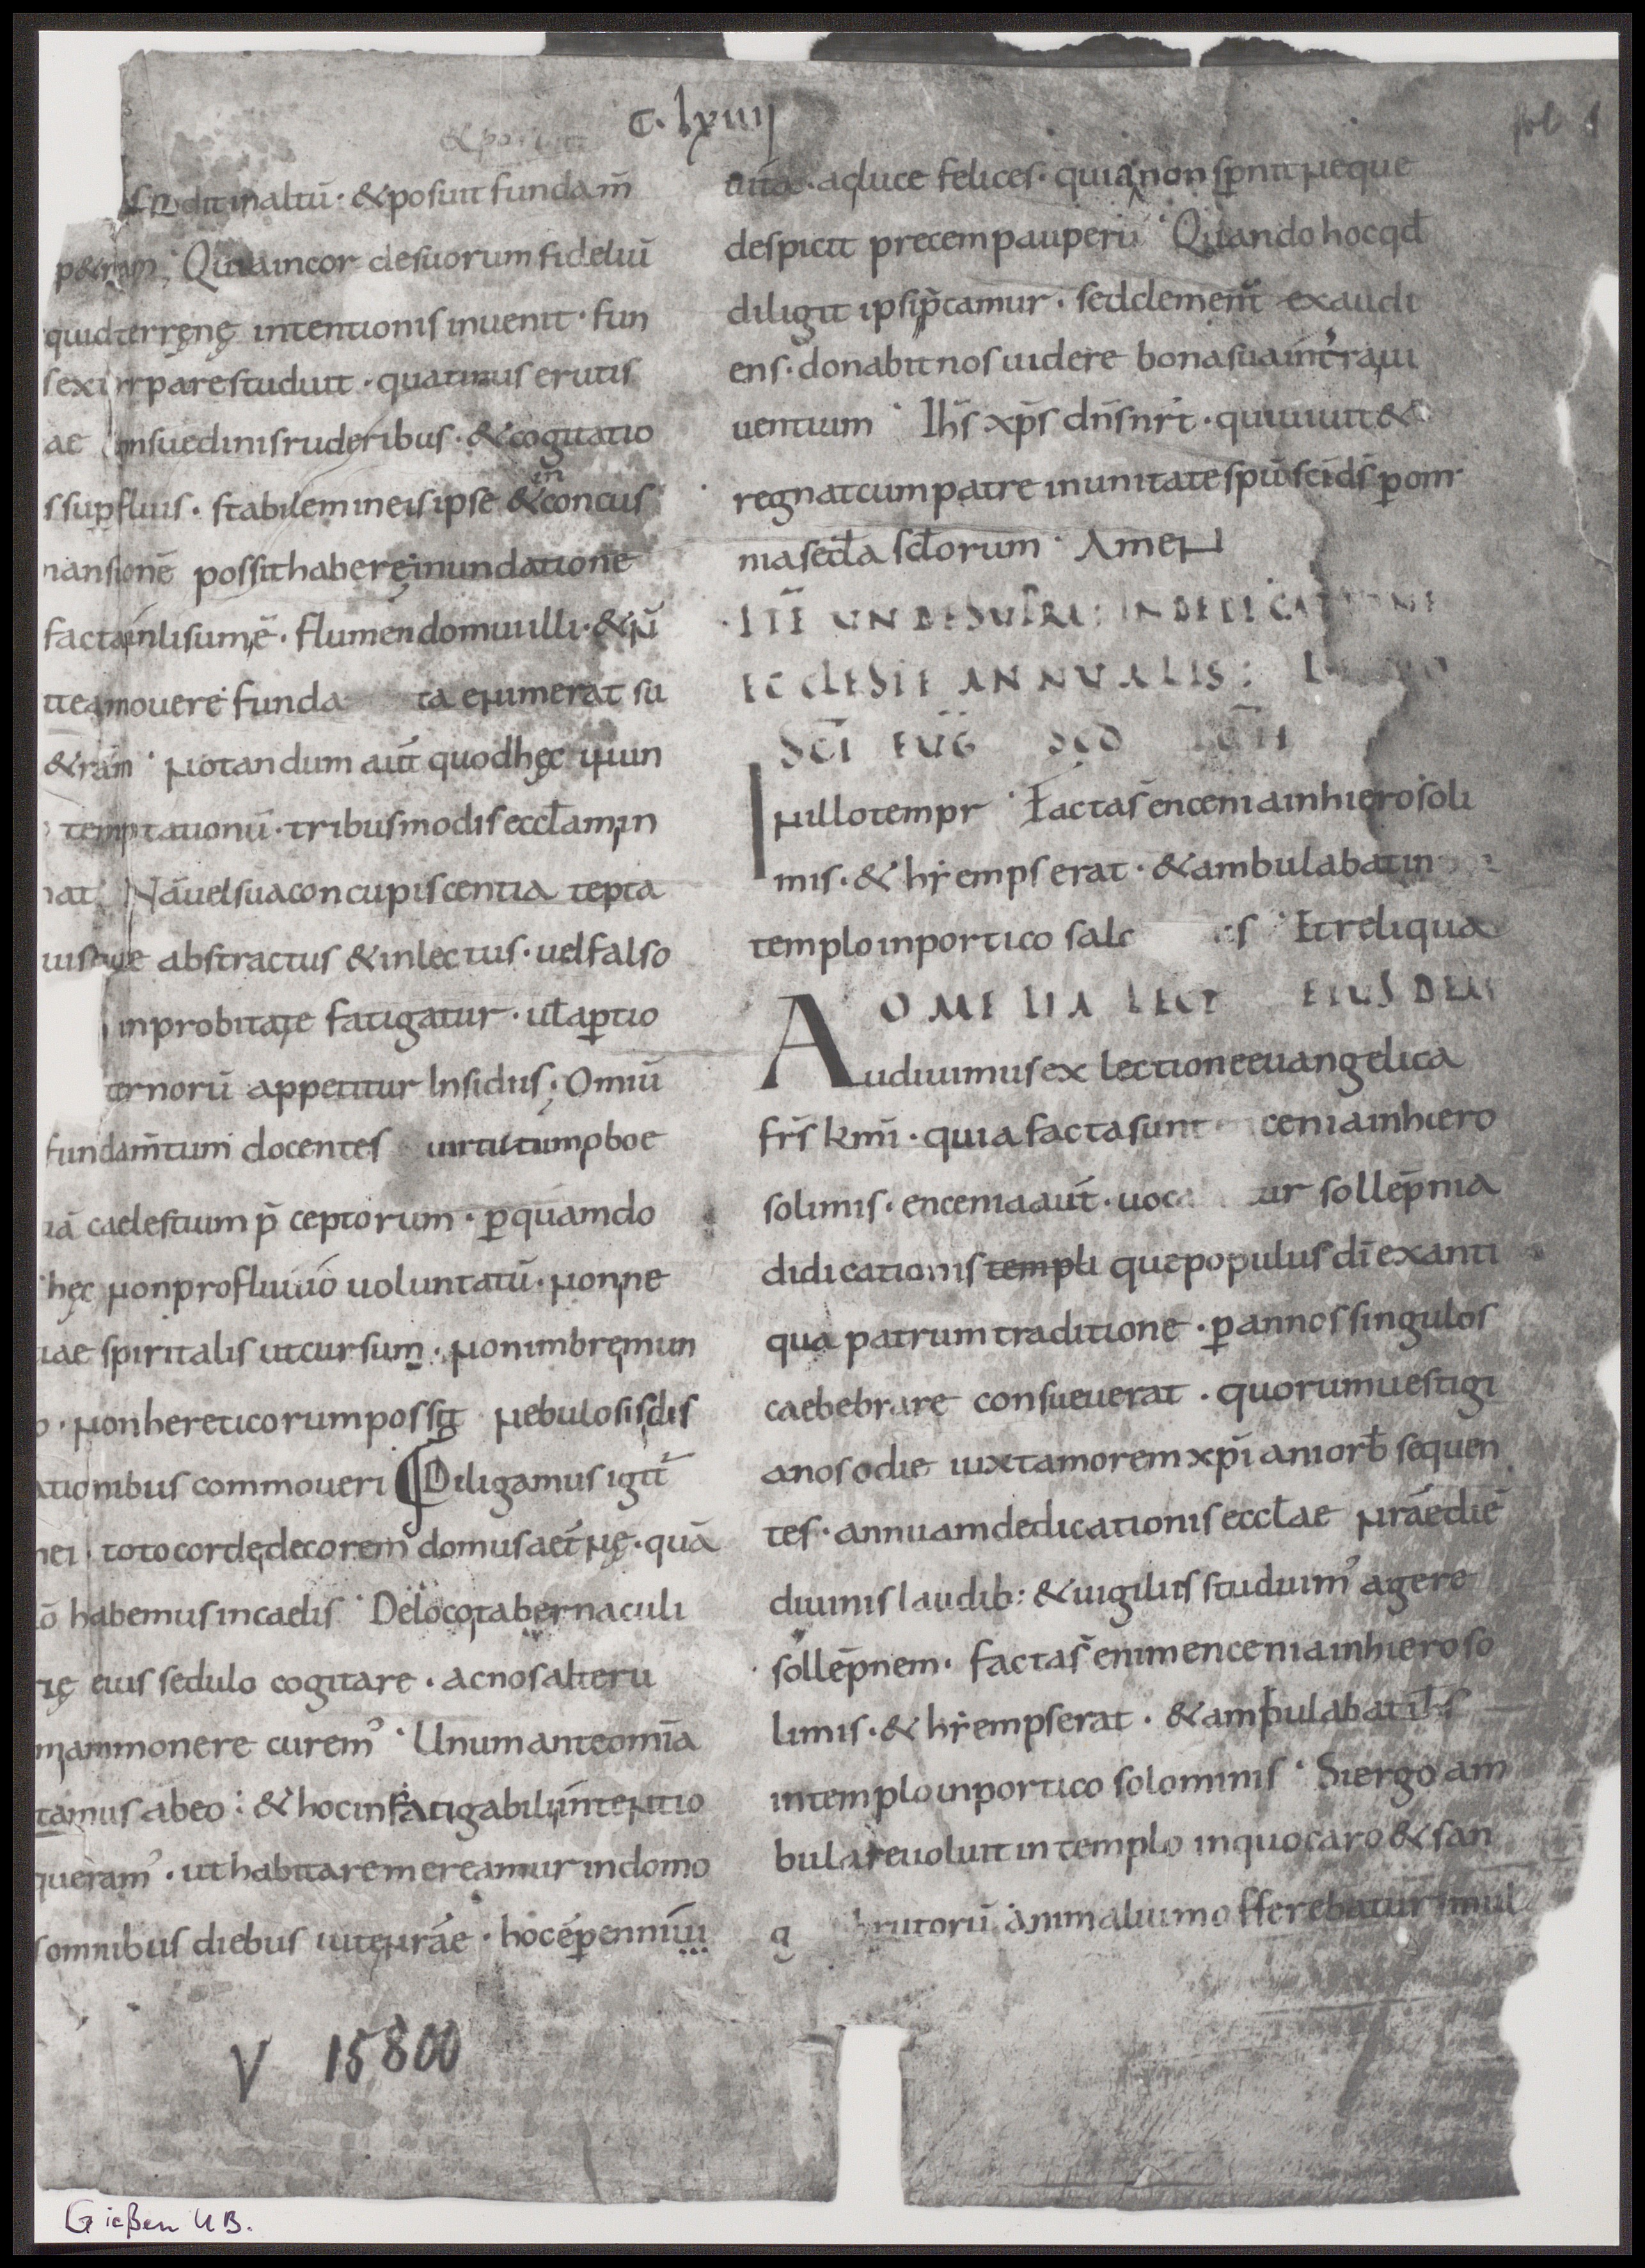 c. lxiiij
fol 1
& posuit
fodit in altū · & posuit fundam̄
petram · Quia in cor de suorum fideliū
quid terręnę intentionis inuenit · fun
s exi rpare studuit · quatinus erutis
ae consuedinis ruderibus · & cogitatio
s sup̱fluis · stabilem in eis ipse & in concus
mansionē possit habere inundatione
facta inlisum ē · flumen domui illi · & n̄
it eam ouere funda ta enumerat su
&rām · Notandum aut̄ quod hęc inun
temptationū · tribus modis eccl̄am in
nat · Nā uel sua concupiscentia tēpta
uisque abstractus & inlectus · uel falso
inprobitate fatigatur · ut̄ ap̱tio
ternorū appetitur Insidiis ; Omiū
fundam̄tum docentes uirtutum oboe
iā caelestium p̄ceptorum · p̱ quam do
hęc non profluuio uoluntatū · nonne
iae spiritalis ut cursum · non imbrem un
o · non hereticorum possit nebulosis dis
ationibus commoueri Diligamus igit̄
mei · toto corde decorem domus aet̄nę · quā
tō habemus in caelis · De loco tabernaculi
rię eius sedulo cogitare · ac nos alteru
m ammonere curem᾽ · Unum ante om̄ia
tamus ab eo : & hoc infatigabili intentio
queram᾽ · ut habitare mereamur in domo
s omnibus diebus uitę nr̄ae · hoc ē p̱enni ui
uita · ac luce felices · quia non sp̱nit neque
despicit precem pauperū · Quando hoc qd̄
diligit ipsi p̄camur · sed clement̄ exaudi
ens · donabit nos uidere bona sua in t̄ra ui
uentium · Ih̄s xp̄s dn̄s nr̄t · qui uiuit &
regnat cum patre in unitate sp̄u sc̄i d̄s p̱ om
nia secl̄a scl̄orum · Amen
ITĒ UNDE SUPRA : IN DEDICATIONE
ECCLESIE ANNUALIS : LECTIO
SC̄I EUḠ SCD̄ IOH̄
In illo tempr · Facta s̄ encenia in hierosoli
mis · & hẏemps erat · & ambulabat in
templo in portico salo is · Et reliqua
OMELIA LECT EIUSDEM
Audiuimus ex lectione euangelica
fr̄s km̄i · quia facta sunt cenia in hiero
solimis · encenia aut̄ · uoca ur sollēpnia
didicationis templi que populus dī ex anti
qua patrum traditione · p̱ annos singulos
caebebrare consueuerat · quorum uestigi
a nos odie iuxta morem xp̄ianior̄ sequen
tes · annuam dedicationis eccl̄ae nr̄ae diē
diuinis laudib: & uigiliis studuim᾽ agere
sollēpnem · facta s̄ enim encenia in hieroso
limis · & hẏemps erat · & ambulabat ih̄s
in templo in portico solominis · Si ergo am
bulare uoluit in templo in quo caro & san
g brutorū animalium offerebatur mul
V 15800
Gießen UB.